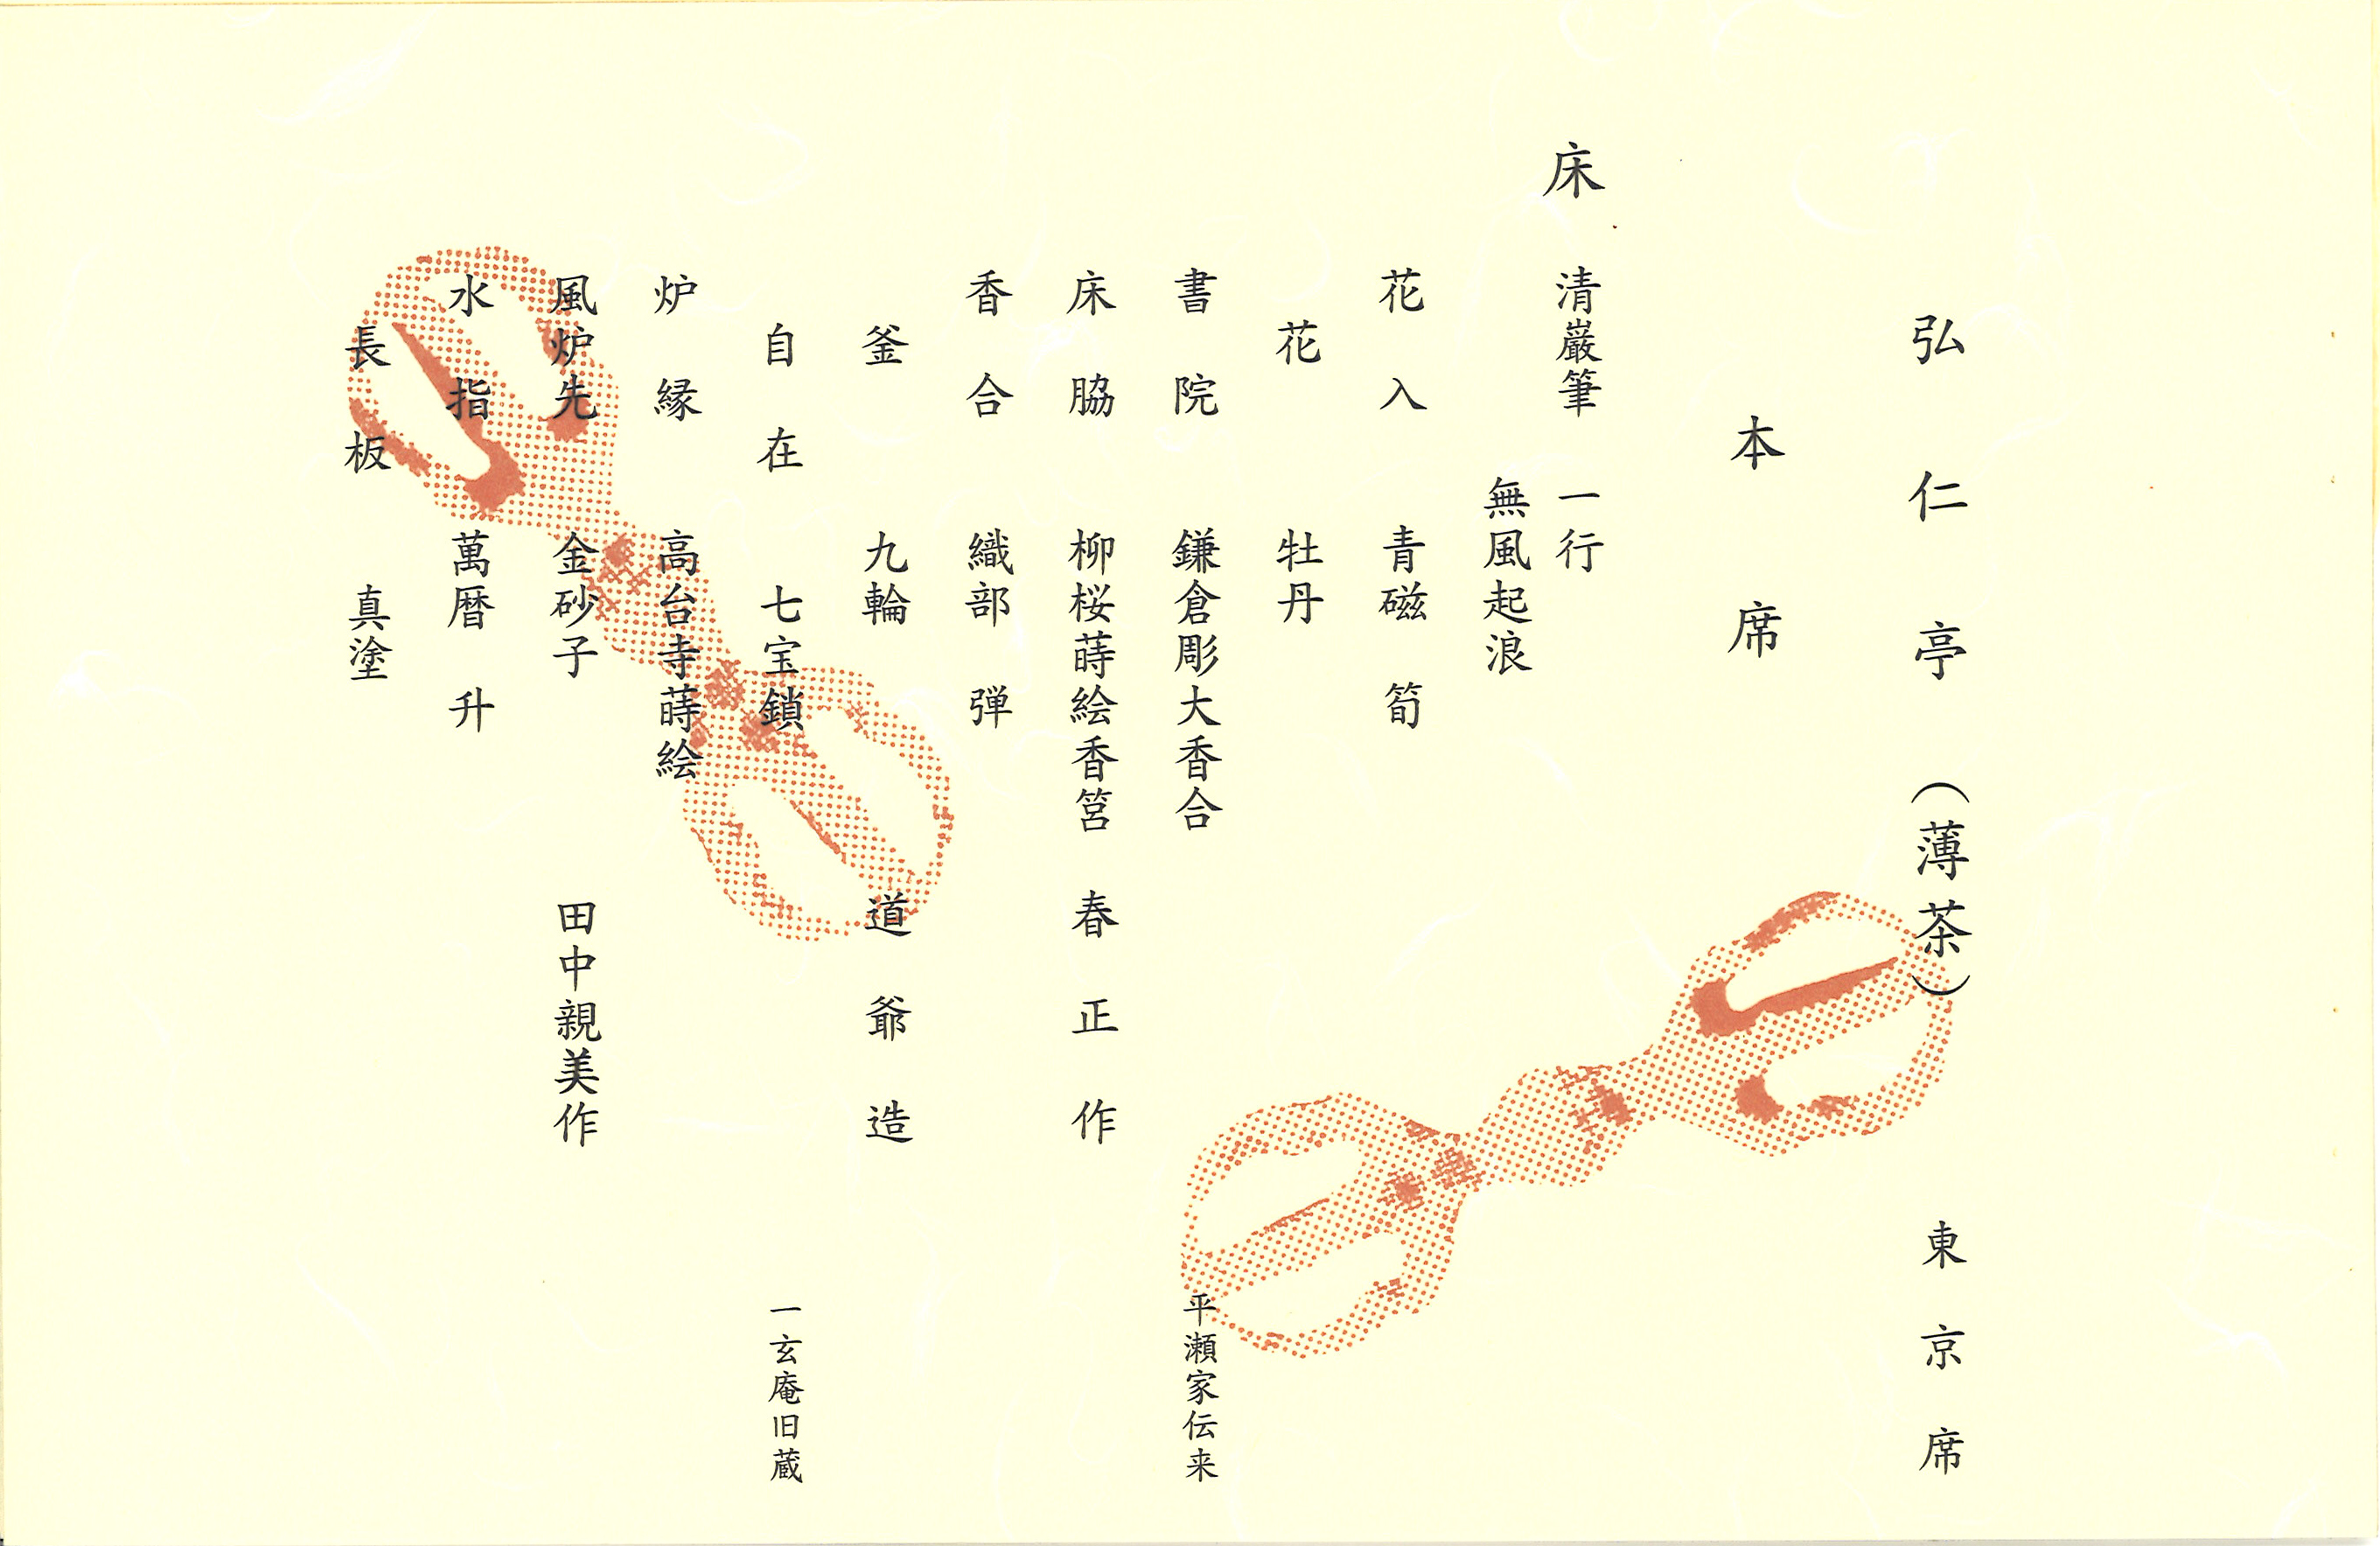 弘仁亭（薄茶）　東京席
本席
床　清巌筆　一行
無風起浪
花入　青磁　筍
花　牡丹
書院　鎌倉彫大香合　平瀬家伝来
床脇　柳桜蒔絵香筥　春正作
香合　織部　弾
釜　九輪　道爺造
自在　七宝鎖　一玄庵旧蔵
炉縁　高台寺蒔絵
風炉先　金砂子　田中親美作
水指　萬暦　升
長板　真塗